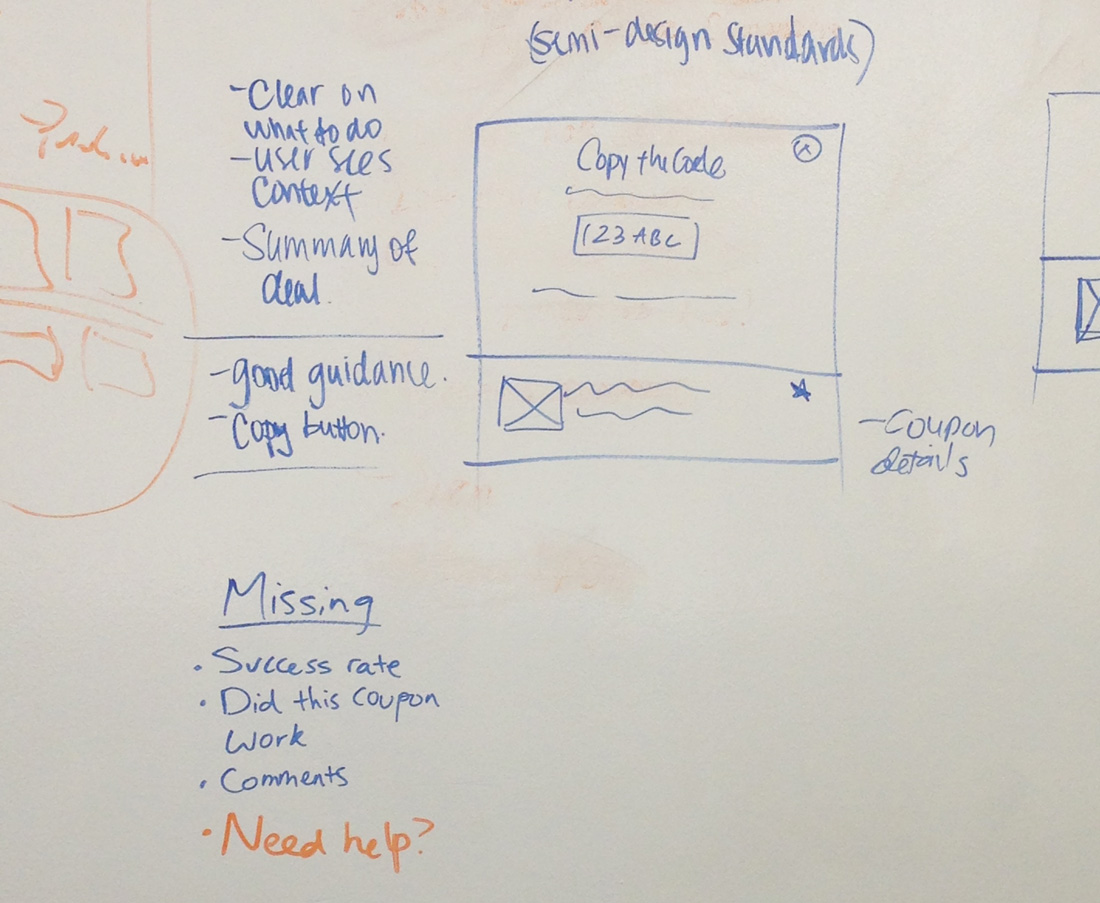 (semi-design standards)
-Clear on
what to do
-user sees
context
-Summary of
deal.
-good guidance.
-Copy button.
Copy the Code
123 ABC
-Coupon
details
Missing
• Success rate
• Did this coupon
work
• Comments
• Need help?